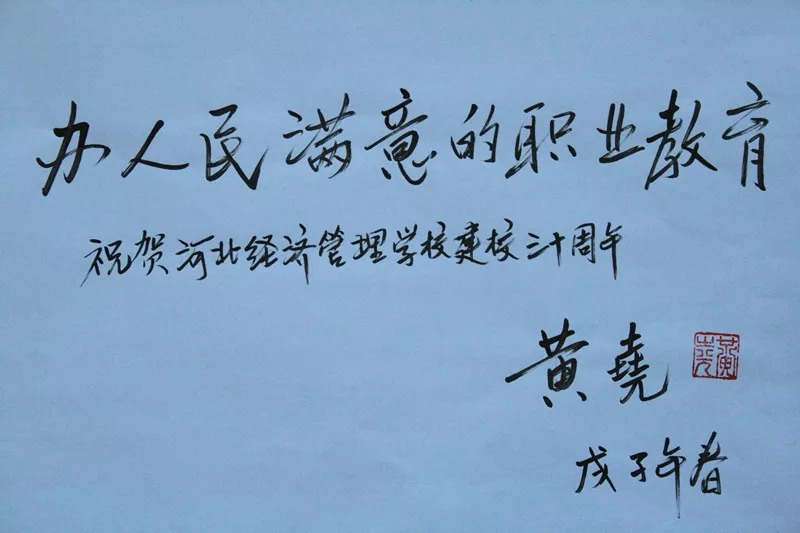 办人民满意的职业教育
祝贺河北经济管理学校建校三十周年
黄尧
黄尧
戊子年春